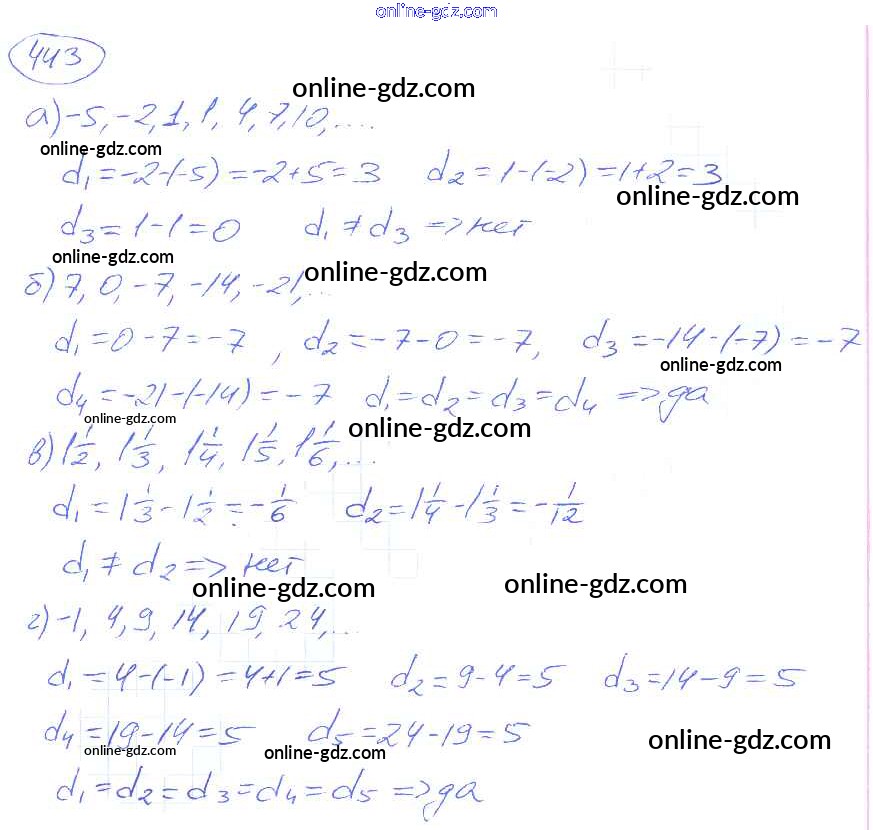 online-gdz.com
443
online-gdz.com
а) -5, -2, 1, 1, 4, 7, 10, ....
online-gdz.com
d₁ = -2-(-5) = -2+5 = 3 d₂ = 1-(-2) = 1+2 = 3
online-gdz.com
d₃ = 1-1 = 0 d₁ ≠ d₃ => нет
online-gdz.com
online-gdz.com
б) 7, 0, -7, -14, -21, ...
d₁ = 0-7 = -7, d₂ = -7-0 = -7, d₃ = -14-(-7) = -7
online-gdz.com
d₄ = -21-(-14) = -7 d₁ = d₂ = d₃ = d₄ => да
online-gdz.com
online-gdz.com
в) 1 1/2, 1 1/3, 1 1/4, 1 1/5, 1 1/6, ...
d₁ = 1 1/3 - 1 1/2 = -1/6 d₂ = 1 1/4 - 1 1/3 = -1/12
d₁ ≠ d₂ => нет
online-gdz.com
online-gdz.com
г) -1, 4, 9, 14, 19, 24, ...
d₁ = 4-(-1) = 4+1 = 5 d₂ = 9-4 = 5 d₃ = 14-9 = 5
d₄ = 19-14 = 5 d₅ = 24-19 = 5
online-gdz.com
online-gdz.com
online-gdz.com
d₁ = d₂ = d₃ = d₄ = d₅ => да